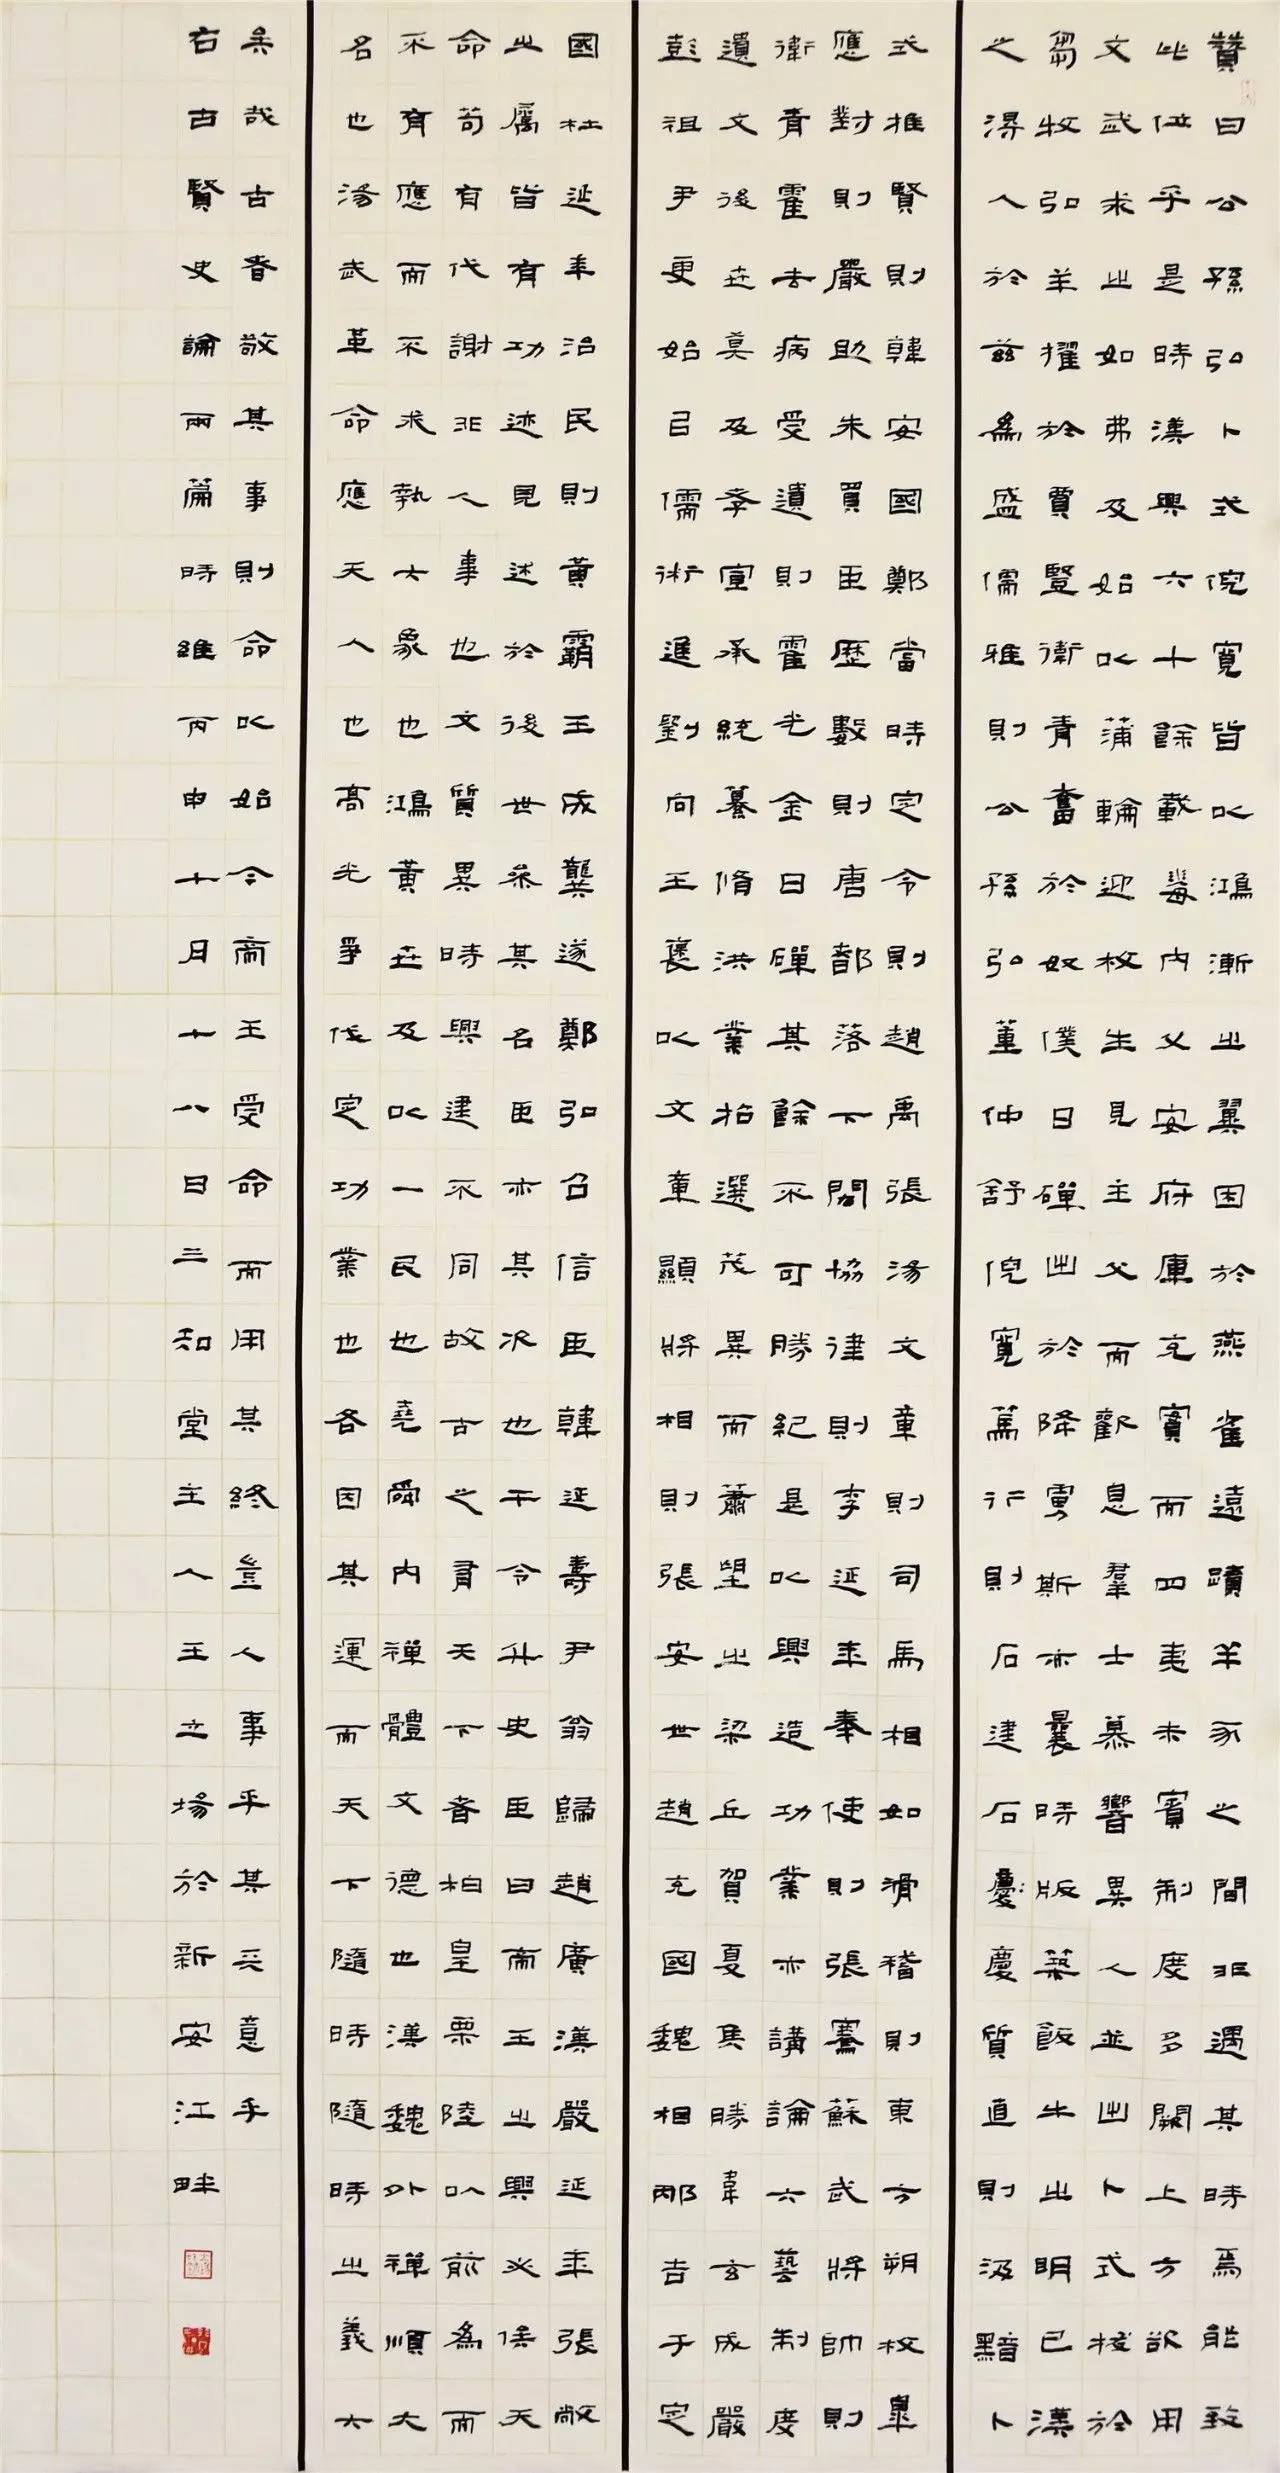 贊曰公孫弘卜式倪寬皆以鴻漸之翼困於燕雀遠蹟羊豕之間非遇其時焉能致
此位乎是時漢興六十餘載海內乂安府庫充實而四夷未賓制度多闕上方欲用
文武求之如弗及始以蒲輪迎枚生見主父而歎息羣士慕響異人並出卜式拔於
芻牧弘羊擢於賈豎衛青奮於奴僕日磾出於降虜斯亦曩時版築飯牛之明已漢
之得人於茲為盛儒雅則公孫弘董仲舒倪寬篤行則石建石慶慶質直則汲黯卜
式推賢則韓安國鄭當時定令則趙禹張湯文章則司馬相如滑稽則東方朔枚皋
應對則嚴助朱買臣歷數則唐都落下閎協律則李延年奉使則張騫蘇武將帥則
衛青霍去病受遺則霍光金日磾其餘不可勝紀是以興造功業亦講論六藝制度
遺文後世莫及孝宣承統纂脩洪業招選茂異而蕭望之梁丘賀夏侯勝韋玄成嚴
彭祖尹更始以儒術進劉向王褒以文章顯將相則張安世趙充國魏相邴吉于定
國杜延年治民則黃霸王成龔遂鄭弘召信臣韓延壽尹翁歸趙廣漢嚴延年張敞
之屬皆有功迹見述於後世參其名臣亦其次也干令升史臣曰帝王之興必俟天
命苟有代謝非人事也文質異時興建不同故古之有天下者柏皇栗陸以前為而
不有應而不求執大象也鴻黃世及以一民也堯舜內禪體文德也漢魏外禪順大
名也湯武革命應天人也高光爭伐定功業也各因其運而天下隨時隨時之義大
矣哉古者敬其事則命以始今帝王受命而用其終豈人事乎其天意乎
右古賢史論兩篇時維丙申十月十八日三知堂主人王立場於新安江畔